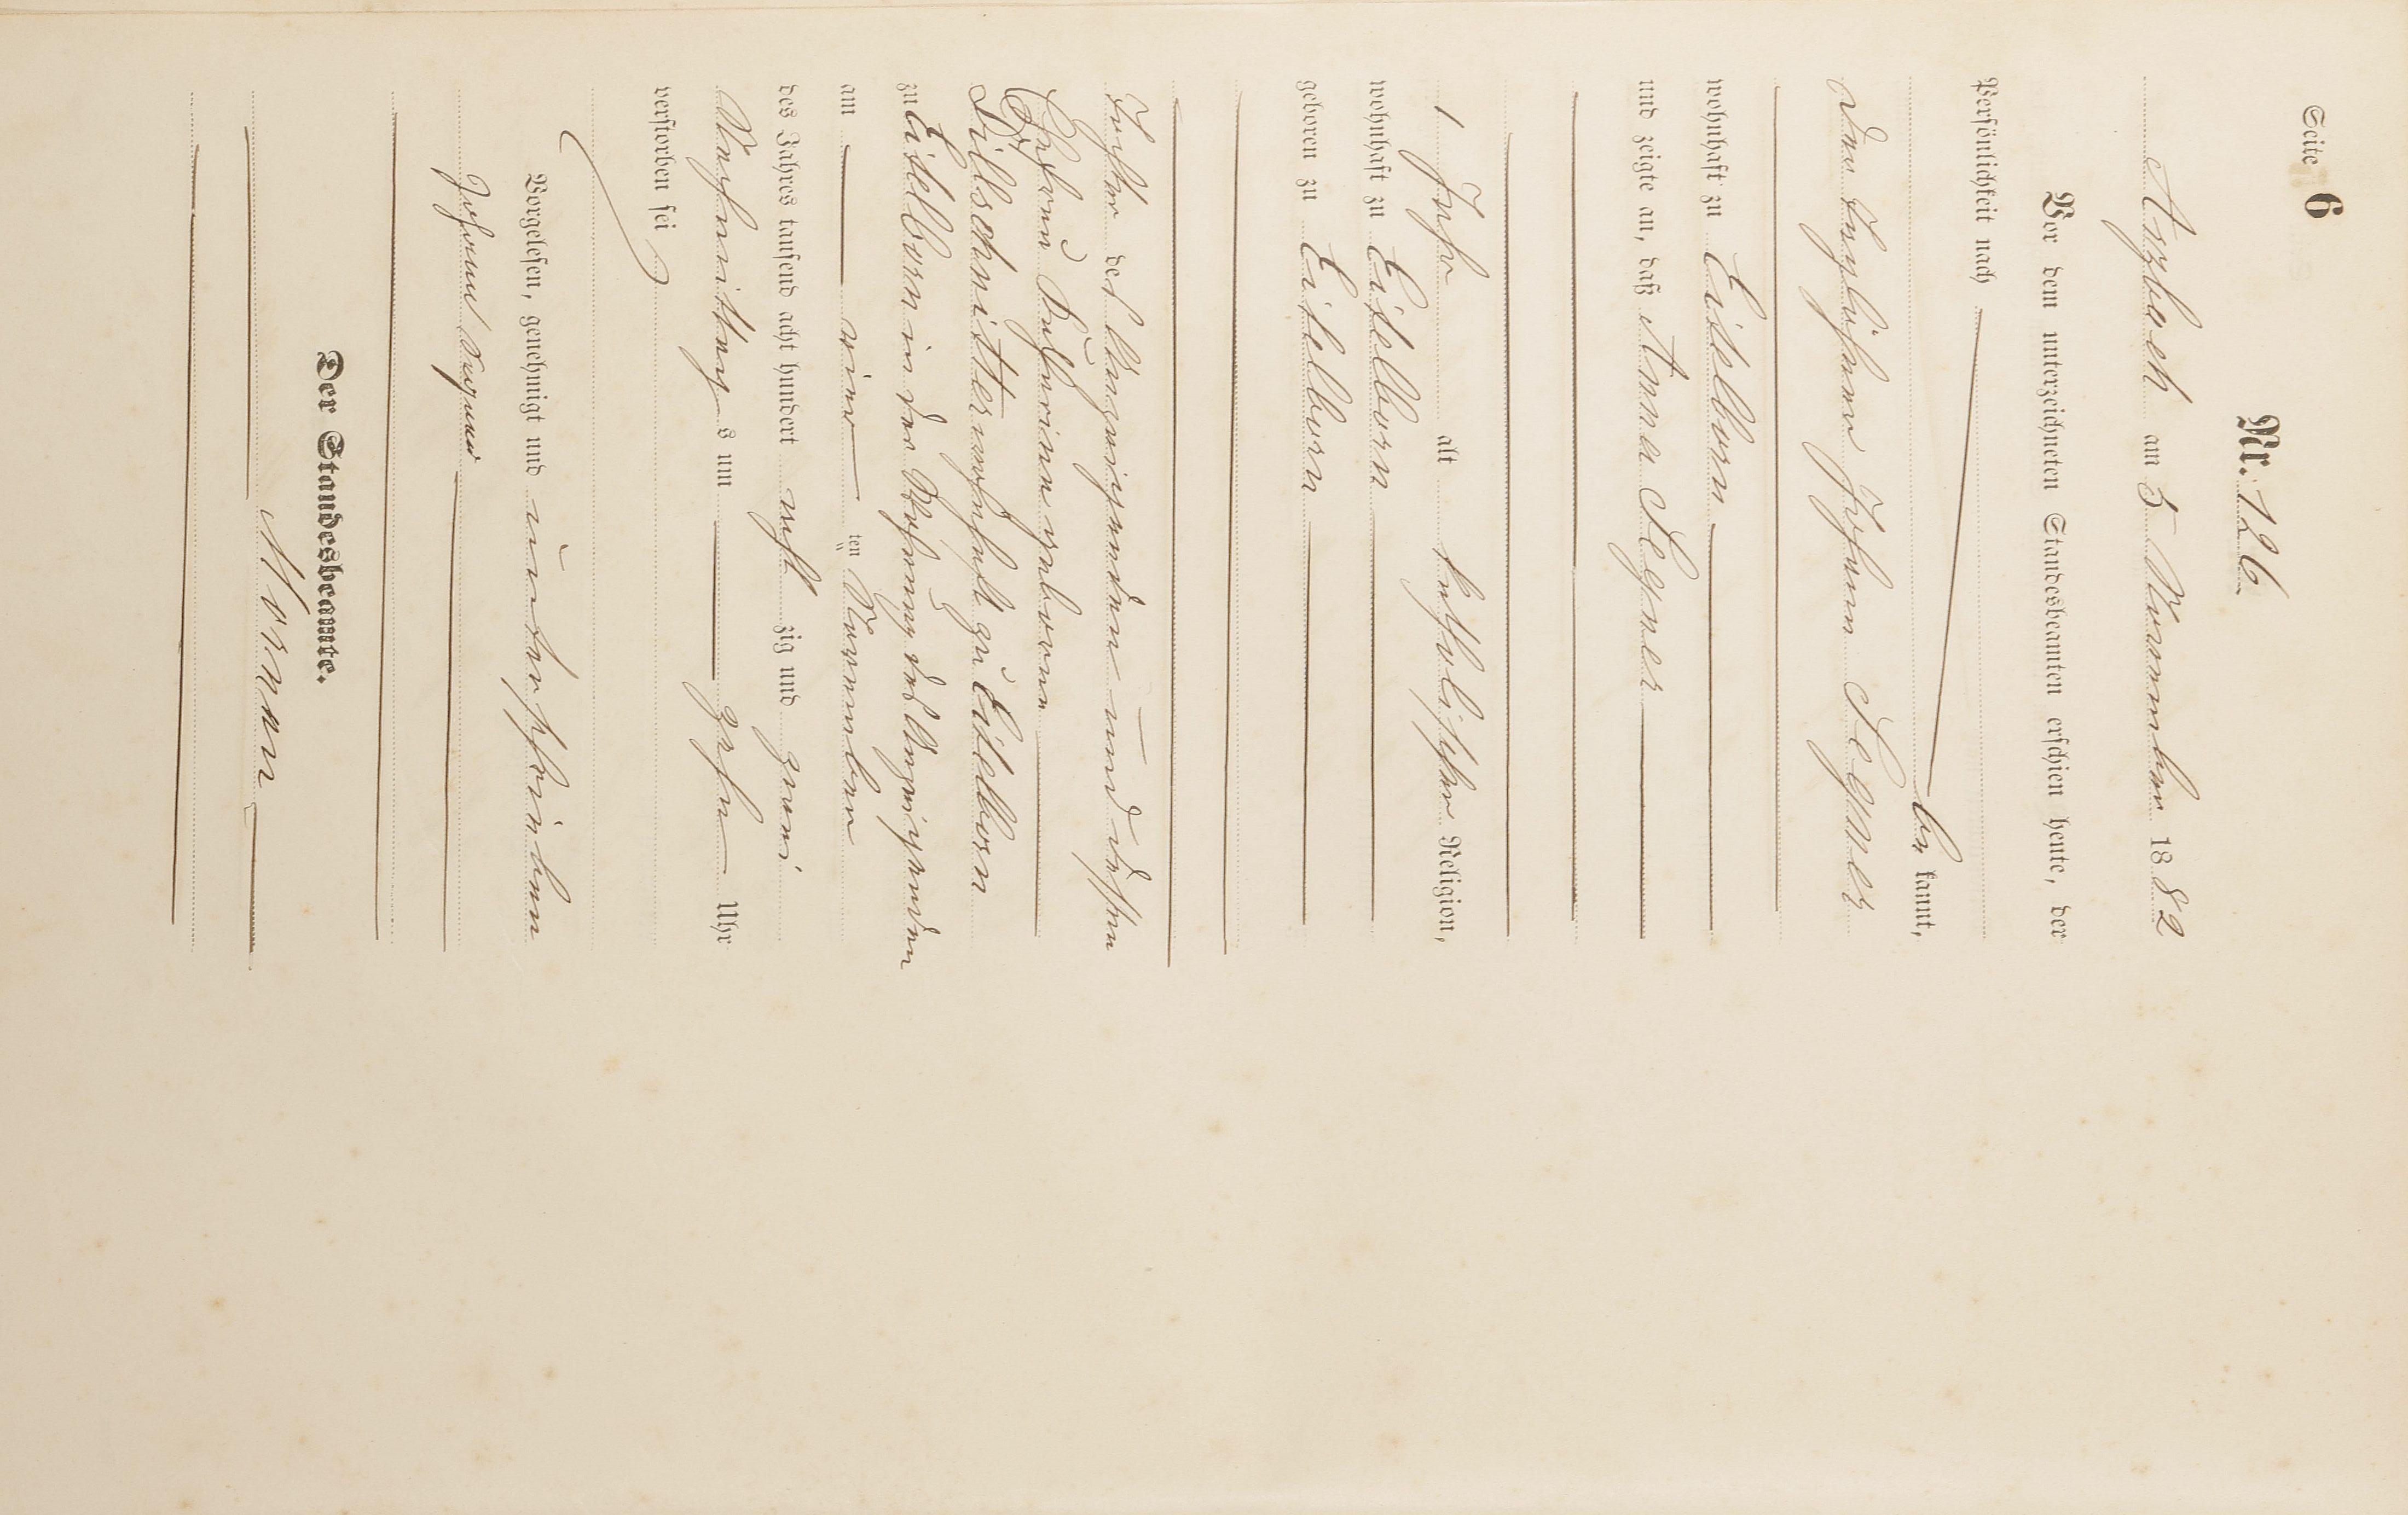 Seite 6
Nr. 126
Arzbach am 5 November 1882
Vor dem unterzeichneten Standesbeamten erschien heute, der
Persönlichkeit nach
be kannt,
der Taglöhner Johann Legner
wohnhaft zu Eitelborn
und zeigte an, daß Anna Legner
1 Jahr alt katholischer Religion,
wohnhaft zu Eitelborn
geboren zu Eitelborn
Tochter des Anzeigenden und dessen
Ehefrau Katharina geborene
Dillschnitter wohnhaft zu Eitelborn
zu Eitelborn in der Wohnung des Anzeigenden
am vier ten November
des Jahres tausend acht hundert acht zig und zwei
Nachmittag s um zehn Uhr
verstorben sei
Vorgelesen, genehmigt und unterschrieben
Johann
Der Standesbeamte.